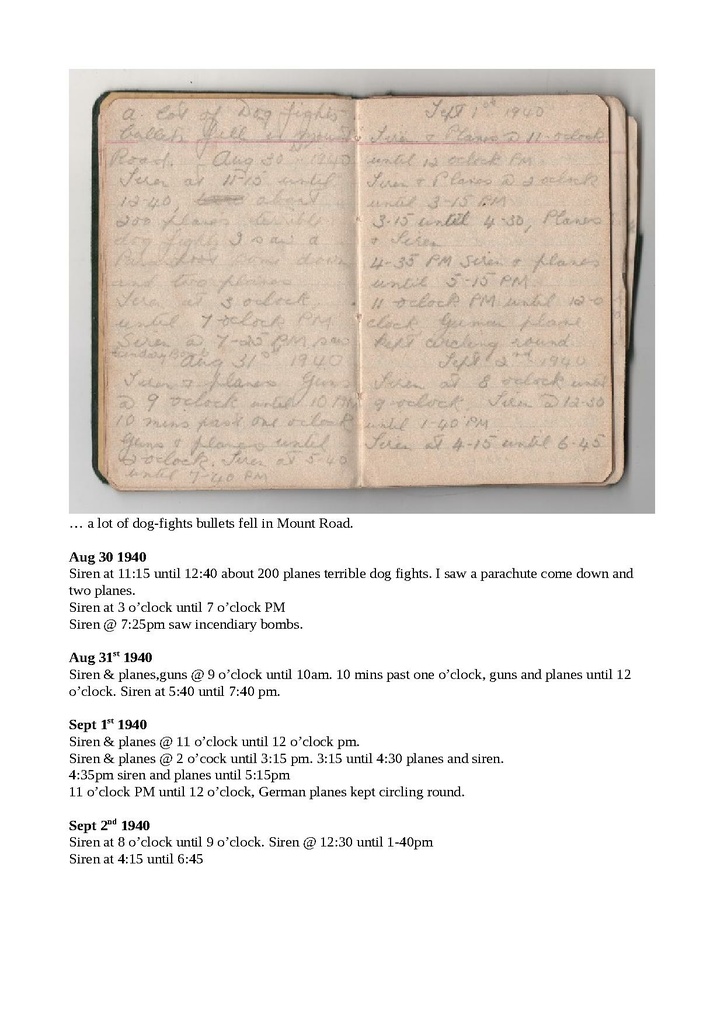 a. lot of Dog fights
bullets fell in Mount
Road. Aug 30 1940
Siren at 11-15 until
12-40, about
200 planes terrible
dog fights I saw a
come down
and two planes
Siren at 3 oclock
until 7 oclock PM
Siren @ 7-25 PM saw
Aug 31st 1940
Siren & planes Guns
@ 9 oclock until 10 AM
10 mins past one oclock
Guns & planes until
oclock. Siren at 5-40
until 7-40 PM
Sept 1st 1940
Siren & Planes @ 11-oclock
until 12 oclock PM
Siren & Planes @ 2 oclock
until 3-15 PM
3-15 until 4-30, Planes
& Siren
4-35 PM Siren & planes
until 5-15 PM
11 oclock PM until 12-o
clock German plane
kept circling round
Sept 2nd 1940
Siren at 8 oclock until
9-oclock Siren @ 12-30
until 1-40 PM
Siren at 4-15 until 6-45
… a lot of dog-fights bullets fell in Mount Road.
Aug 30 1940
Siren at 11:15 until 12:40 about 200 planes terrible dog fights. I saw a parachute come down and
two planes.
Siren at 3 o’clock until 7 o’clock PM
Siren @ 7:25pm saw incendiary bombs.
Aug 31st 1940
Siren & planes,guns @ 9 o’clock until 10am. 10 mins past one o’clock, guns and planes until 12
o’clock. Siren at 5:40 until 7:40 pm.
Sept 1st 1940
Siren & planes @ 11 o’clock until 12 o’clock pm.
Siren & planes @ 2 o’cock until 3:15 pm. 3:15 until 4:30 planes and siren.
4:35pm siren and planes until 5:15pm
11 o’clock PM until 12 o’clock, German planes kept circling round.
Sept 2nd 1940
Siren at 8 o’clock until 9 o’clock. Siren @ 12:30 until 1-40pm
Siren at 4:15 until 6:45